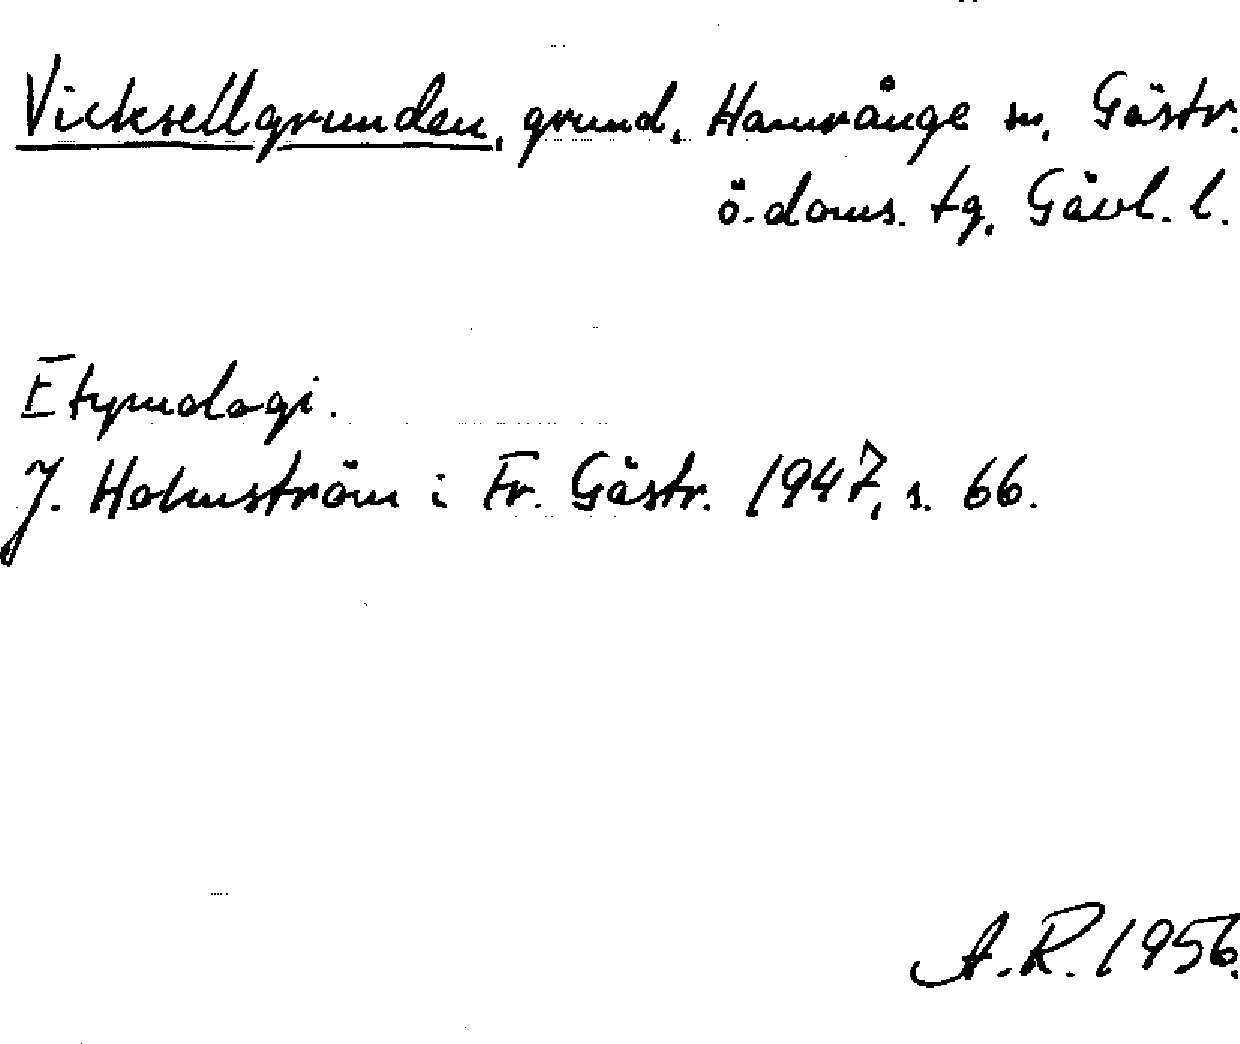 Vicksellgrunden, grund, Hamrånge sn, Gästr.
ö. doms. tg, Gävl. l.
Etymologi.
J. Holmström i Fr. Gästr. 1947, s. 66.
A.R. 1956.